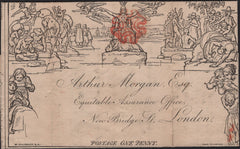 Arthur Morgan, Esq.
Equitable Assurance Office,
New Bridge St, London.
POSTAGE ONE PENNY.